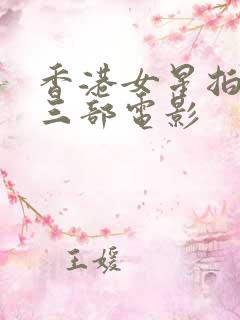 香港女星拍
三部电影
王媛